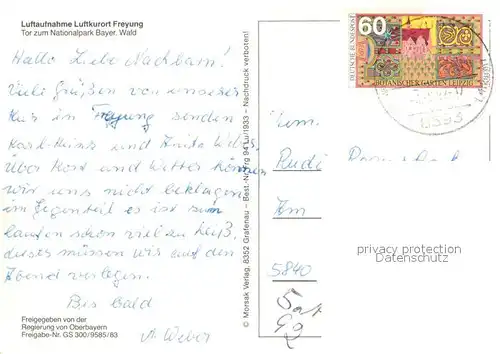 Luftaufnahme Luftkurort Freyung
Tor zum Nationalpark Bayer. Wald
Hallo Liebe Nachbarn!
Viele Grüßen von unserer
Kur in Freyung senden
Karl-Heinz und Anita Weber
über Kost und Wetter können
wir uns nicht beklagen
im Gegenteil es ist zum
laufen schon viel zu heiß,
dieses müssen wir auf den
Abend verlegen.
Bis bald
A. Weber
Freigegeben von der
Regierung von Oberbayern
Freigabe-Nr. GS 300/9585/83
© Morsak Verlag, 8352 Grafenau – Best.-Nr. Frg 94 Lu/1933 – Nachdruck verboten!
60
DEUTSCHE BUNDESPOST
BOTANISCHER GARTEN LEIPZIG
8393
Fam.
Rudi
Am
5840
privacy protection
Datenschutz